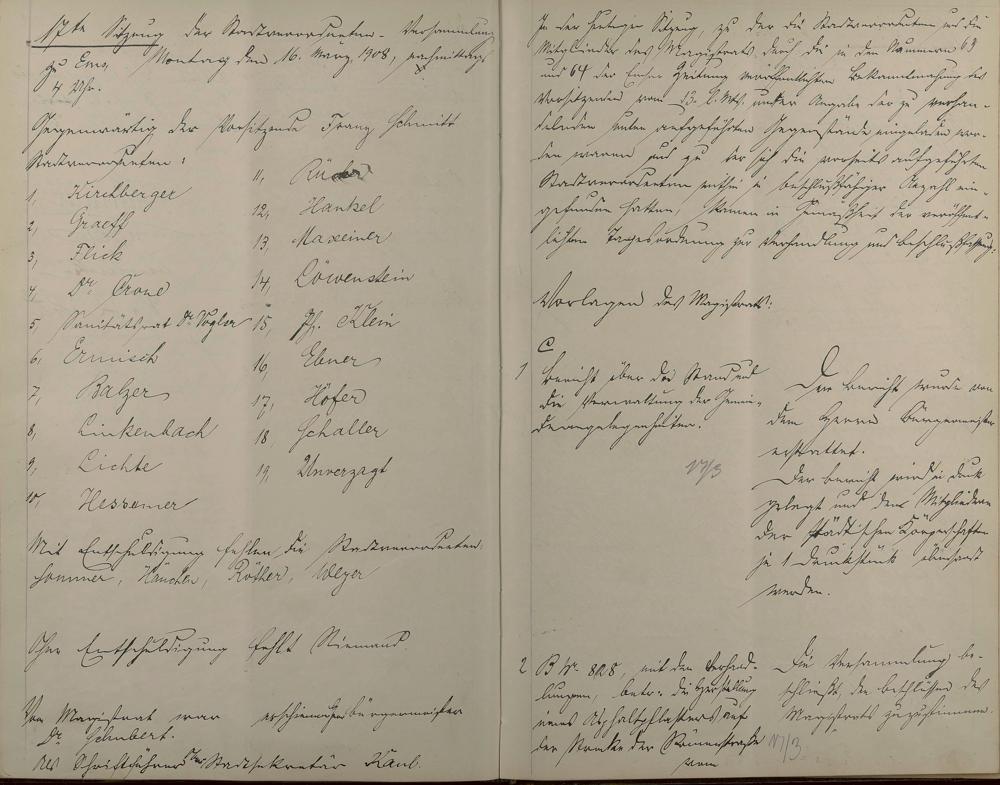 17te Sitzung der Stadtverordneten-Versammlung
zu Ems, Montag den 16. März 1908, nachmittags
4 Uhr.
Gegenwärtig der Vorsitzende Franz Schmitt
Stadtverordneten:
1, Kirchberger
2, Graeff
3, Flick
4, Dr. Crone
5, Sanitätsrat Dr. Vogler
6, Ermisch
7, Balzer
8, Linkenbach
9, Lichte
10, Hessemer
11,
12, Hankel
13, Maxeiner
14, Löwenstein
15, Ph. Klein
16, Ebner
17, Höfer
18, Schaller
19, Unverzagt
Mit Entschuldigung fehlen die Stadtverordneten:
Sommer, Röther,
Ohne Entschuldigung fehlt Niemand.
Vom Magistrat war erschienen Bürgermeister
Dr. Schubert.
Als Schriftführer Stadtsekretär Kaul.
In der heutigen Sitzung, zu der die Stadtverordneten und die
Mitglieder des Magistrats durch die in den Nummern 63
und 64 der Emser Zeitung veröffentlichten Bekanntmachung des
Vorsitzenden vom 13. d. Mts. unter Angabe der zu verhan-
delnden unten aufgeführten Gegenstände eingeladen wor-
den waren und zu der sich die vorseits aufgeführten
Stadtverordneten mithin in beschlußfähiger Anzahl ein-
gefunden hatten, kamen in Gemäßheit der veröffent-
lichten Tagesordnung zur Verhandlung und Beschlußfassung:
Vorlagen des Magistrats:
C
1 Bericht über den Stand und
die Verwaltung der Gemein-
deangelegenheiten.
17/3
Der Bericht wurde von
dem Herrn Bürgermeister
erstattet.
Der Bericht wird in Druck
gelegt und den Mitgliedern
der städtischen Körperschaften
je 1 Druckstück übersandt
werden.
2 B Nr. 828, mit den Verhand-
lungen, betr. die Herstellung
eines Asphaltpflasters auf
der Strecke der Römerstraße
vom
17/3.
Die Versammlung be-
schließt, den Beschlüssen des
Magistrats zuzustimmen.